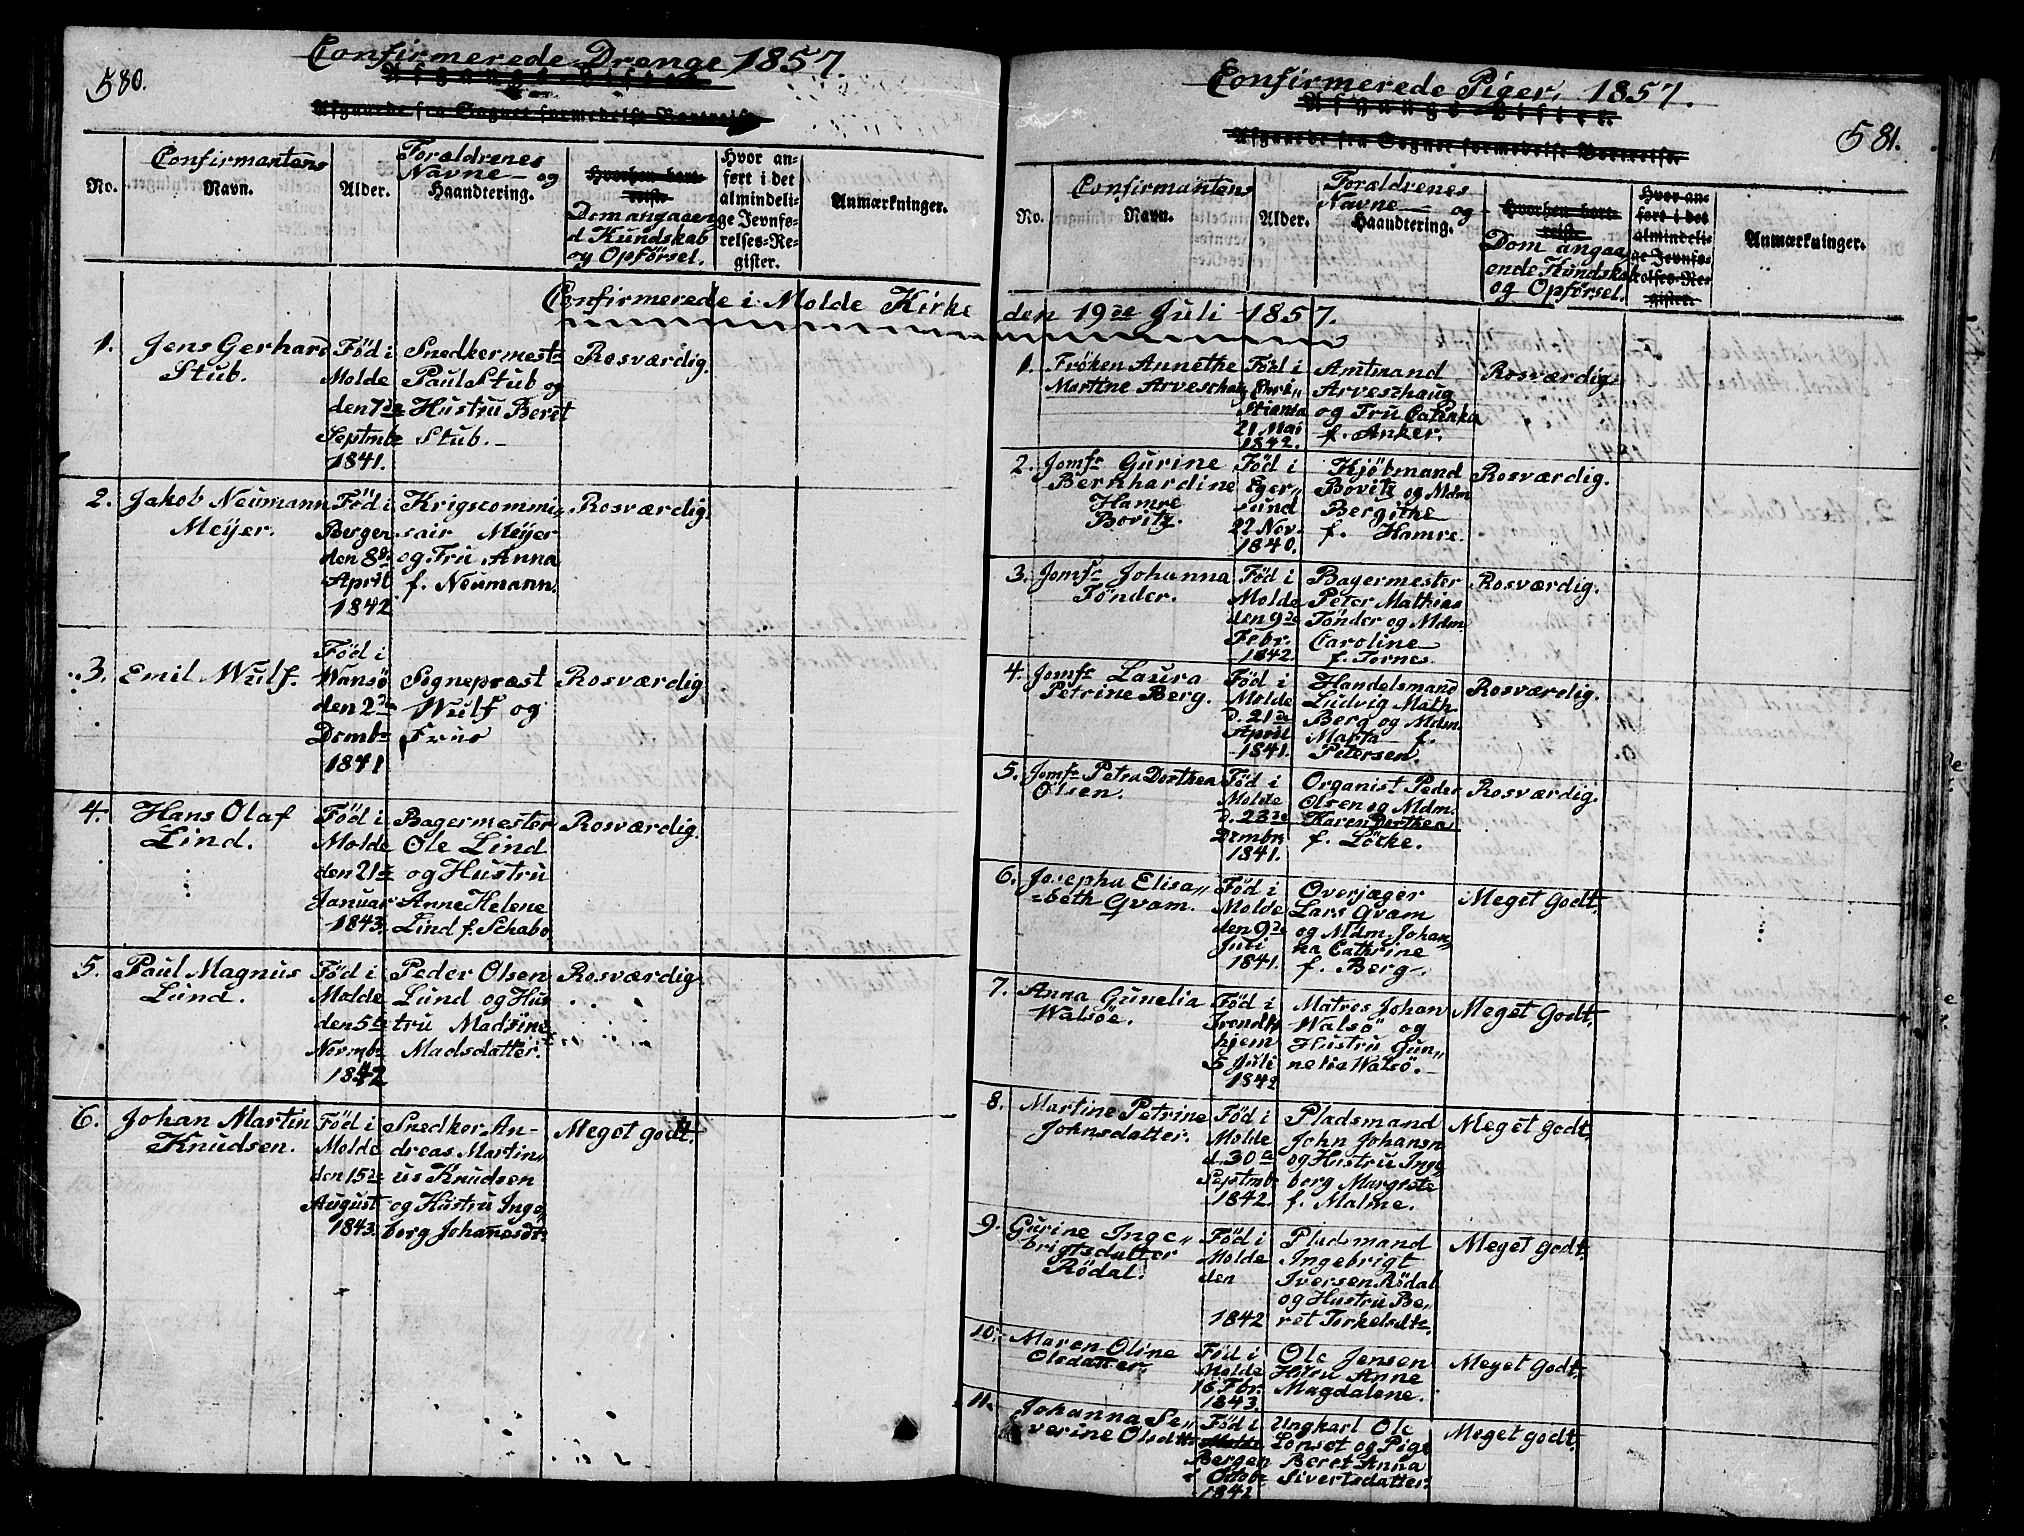 580.
Confirmerede Drenge 1857.
Afgangs-Lister.
Afgaaede fra Sognet formedelst Bortreise
No.
Confirmantens
Navn.
Alder.
Forældrenes
Navne og
Haandtering.
Hvorhen bort-
reiste
Dom angaaen
d Kundskab
og Opförsel.
Hvor an-
ført i det
almindeli-
ge Jevnfø-
relses-Re-
gister.
Anmærkninger.
Confirmerede i Molde Kirke
1.
Jens Gerhard
Stub.
Föd i
Molde
den 7de
Septmb
1841.
Snedkermest
Paul Stub og
Hustru Beret
Stub.
Rosværdig.
2.
Jakob Neumann
Meÿer.
Föd i
Bergen
den 8de
April
1842
Krigscommi„
sair Meÿer
og Fru Anna
f. Neumann.
Rosværdig.
3.
Emil Wulf.
Föd i
Wansö
den 2de
Dcmbr
1841
Sognepræst
Wulf og
Frue
Rosværdig
4.
Hans Olaf
Lind.
Föd i
Molde
den 21de
Januar
1843.
Bagermester
Ole Lind
og Hustru
Anne Helene
Lind f. Schabo
Rosværdig.
5.
Paul Magnus
Lund.
Föd i
Molde
den 5te
Novmb
1842
Peder Olsen
Lund og Hus
tru Madsine
Madsdatter.
Rosværdig.
6.
Johan Martin
Knudsen.
Föd i
Molde
den 15de
August
1843.
Snedker An-
dreas Martin„
us Knudsen
og Hustru Inge„
borg Johanesdt.
Meget godt.
581.
Confirmerede Piger, 1857.
Afgangs-Lister.
Afgaaede fra Sognet formedelst Bortreise.
No.
Confirmantens
Navn.
Alder.
Forældrenes
Navne og
Haandtering.
Hvorhen bort-
reiste.
Dom angaa
ende Kundskab
og Opförsel.
Hvor an-
ført i det
almindeli-
ge Jevnfø-
relses-Re-
gister.
Anmærkninger.
den 19de Juli 1857.
1.
Fröken Annethe
Martine Arveschaug
Föd i
Chri„
stiania
21 Mai
1842.
Amtmand
Arveschaug
og Fru Catinka
f. Anker.
Rosværdig.
2.
Jomfr Gurine
Bernhardine
Hamre
Bovitz.
Föd i
Eger„
sund
22 Nov.
1840.
Kjöbmand
Bovitz og Mdm
Bergithe
f. Hamre.
Rosværdig.
3.
Jomfr Johanna
Tönder.
Föd i
Molde
den 9de
Febr.
1842.
Bagermester
Peter Mathias
Tönder og Mdm.
Caroline
f. Tornes.
Rosværdig.
4.
Jomfr Laura
Petrine Berg.
Föd i
Molde
d. 21de
April
1841.
Handelsmand
Ludvig Math.
Berg og Mdm.
Marta f.
Petersen.
Rosværdig.
5.
Jomfr Petra Dorthea
Olsen.
Föd i
Molde
d. 23de
Dcmbr
1841.
Organist Peder
Olsen og Mdm.
Karen Dorthea
f. Löcke.
Rosværdig.
6.
Josepha Elisa„
beth Gvam.
Föd i
Molde
den 9de
Juli
1841.
Overjæger
Lars Gvam
og Mdm. Johan„
na Cathrine
f. Berg.
Meget Godt.
7.
Anna Gunelia
Walsöe.
Föd i
Trondh
hjem
5 Juli
1842
Matros Johan
Walsö og
Hustru Gun„
nelia Walsö.
Meget Godt.
8.
Martine Petrine
Johnsdatter.
Föd i
Molde
d. 30te
Septmb
1842.
Pladsmand
John Johansn
og Hustru Inge
borg Margrete
f. Malme.
Meget godt.
9.
Gurine Inge„
brigtsdatter
Rödal.
Föd i
Molde
den
1842
Pladsmand
Ingebrigt
Iversen Rödal
og Hustru Be„
ret Torkelsdtr.
Meget godt.
10.
Maren Oline
Olsdatter.
Föd i
Molde
16 Fbr.
1843.
Ole Jensen
Hstru Anne
Magdalene.
Meget Godt.
11.
Johanna Se„
verine Olsdtr
Föd i
Molde
Bergen
Octbr
1841
Ungkarl Ole
Lönset og Pige
Beret Anna
Sivertsdatter.
Meget Godt.